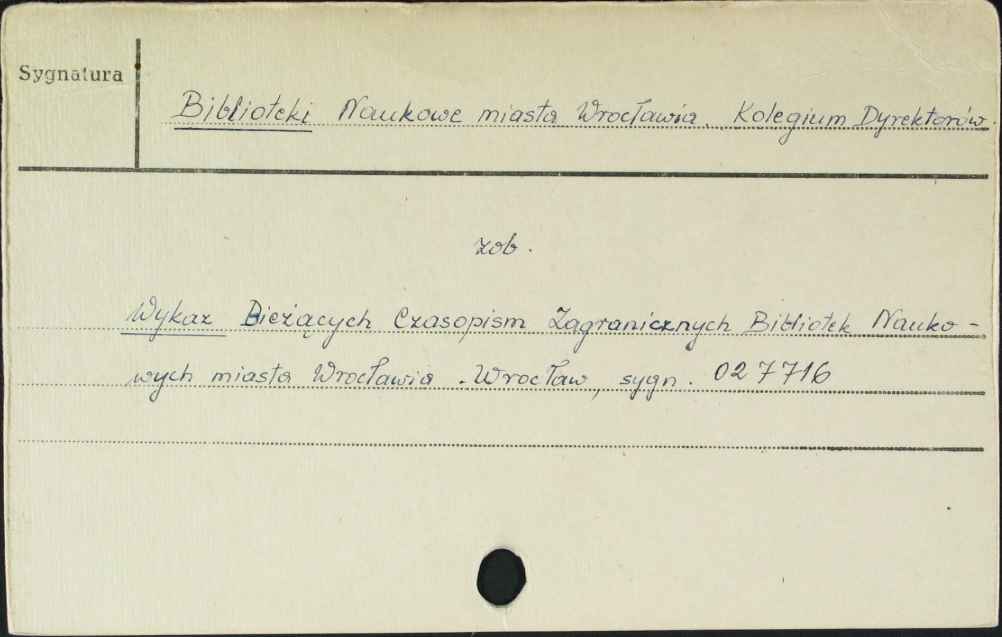 Sygnatura
Biblioteki Naukowe miasta Wrocławia. Kolegium Dyrektorów.
zob.
Wykaz Bieżących Czasopism Zagranicznych Bibliotek Nauko-
wych miasta Wrocławia. Wrocław, sygn. 027716